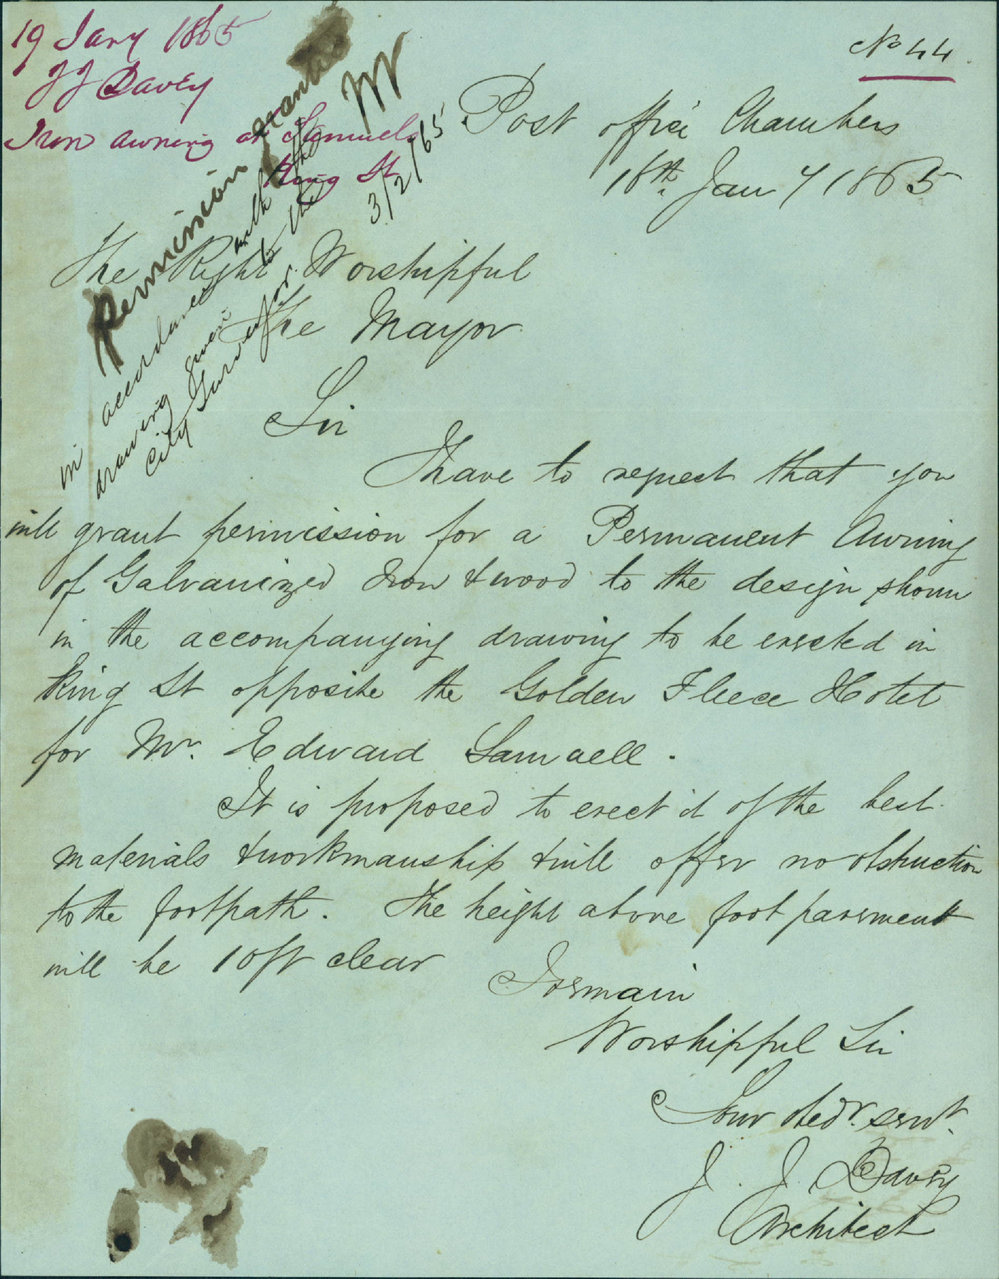 19 Jany 1865
J J Davey
Iron awning at Samuels
King St
No 44
Permission granted
in accordance with the
drawing given to the
City Surveyor.
3/2/65
Post office Chambers
18th Jany 1865
The Right Worshipful
The Mayor
Sir
I have to request that you
will grant permission for a Permanent Awning
of Galvanized Iron & wood to the design shown
in the accompanying drawing to be erected in
King St opposite the Golden Fleece Hotel
for Mr. Edward Samuell.
It is proposed to erect it of the best
materials & workmanship & will offer no obstruction
to the footpath. The height above foot pavement
will be 10ft clear
I remain
Worshipful Sir
Your obedr. servt.
J. J. Davey
Architect